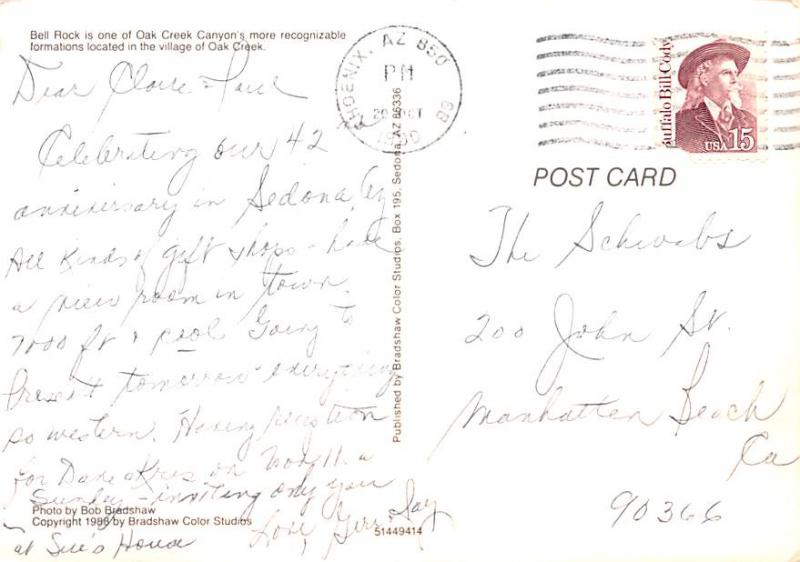 Bell Rock is one of Oak Creek Canyon's more recognizable
formations located in the village of Oak Creek.
Dear Claire + Paul
Celebrating our 42
anniversary in Sedona, Az
All kinds of gift shops - have
a view room in town.
7000 ft & cool Going to
Prescott tomorrow everything
so western. Having reception
for Dane & Kris on Nov 11. a
Sunday - inviting only you
at Sue's House
Love, Gerr
Photo by Bob Bradshaw
Copyright 1988 by Bradshaw Color Studios
51449414
Published by Bradshaw Color Studios, Box 195, Sedona, AZ 86336
PHOENIX, AZ 850
PM
20 OCT
1990
Buffalo Bill Cody
USA 15
POST CARD
The Schwabs
200 John St.
Manhatten Beach
Ca
90366